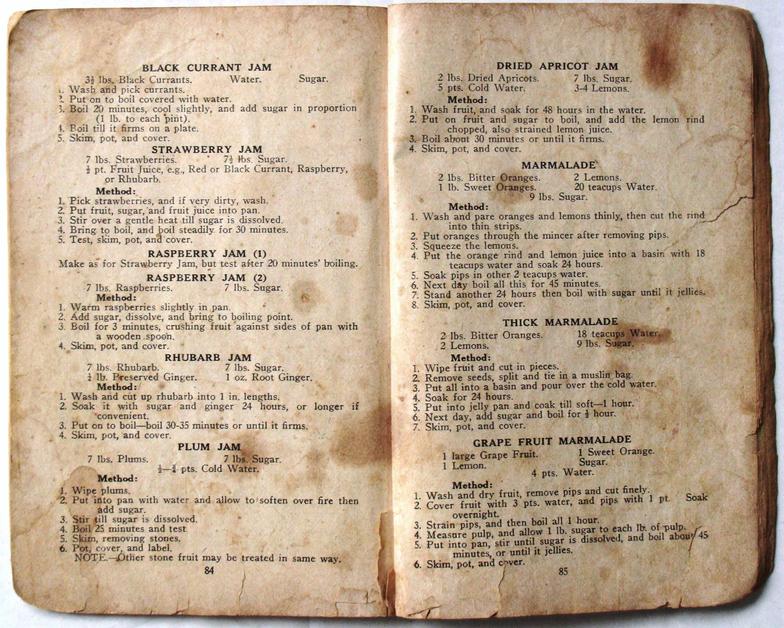 BLACK CURRANT JAM
3½ lbs. Black Currants. Water. Sugar.
1. Wash and pick currants.
2. Put on to boil covered with water.
3. Boil 20 minutes, cool slightly, and add sugar in proportion
(1 lb. to each pint).
4. Boil till it firms on a plate.
5. Skim, pot, and cover.
STRAWBERRY JAM
7 lbs. Strawberries. 7½ lbs. Sugar.
½ pt. Fruit Juice, e.g., Red or Black Currant, Raspberry,
or Rhubarb.
Method:
1. Pick strawberries, and if very dirty, wash.
2. Put fruit, sugar, and fruit juice into pan.
3. Stir over a gentle heat till sugar is dissolved.
4. Bring to boil, and boil steadily for 30 minutes.
5. Test, skim, pot, and cover.
RASPBERRY JAM (1)
Make as for Strawberry Jam, but test after 20 minutes' boiling.
RASPBERRY JAM (2)
7 lbs. Raspberries. 7 lbs. Sugar.
Method:
1. Warm raspberries slightly in pan.
2. Add sugar, dissolve, and bring to boiling point.
3. Boil for 3 minutes, crushing fruit against sides of pan with
a wooden spoon.
4. Skim, pot, and cover.
RHUBARB JAM
7 lbs. Rhubarb. 7 lbs. Sugar.
lb. Preserved Ginger. 1 oz. Root Ginger.
Method:
1. Wash and cut up rhubarb into 1 in. lengths.
2. Soak it with sugar and ginger 24 hours, or longer if
convenient.
3. Put on to boil—boil 30-35 minutes or until it firms.
4. Skim, pot, and cover.
PLUM JAM
7 lbs. Plums. 7 lbs. Sugar.
½—¾ pts. Cold Water.
Method:
1. Wipe plums.
2. Put into pan with water and allow to soften over fire then
add sugar.
3. Stir till sugar is dissolved.
4. Boil 25 minutes and test
5. Skim, removing stones.
6. Pot, cover, and label.
NOTE.—Other stone fruit may be treated in same way.
84
DRIED APRICOT JAM
2 lbs. Dried Apricots. 7 lbs. Sugar.
5 pts. Cold Water. 3-4 Lemons.
Method:
1. Wash fruit, and soak for 48 hours in the water.
2. Put on fruit and sugar to boil, and add the lemon rind
chopped, also strained lemon juice.
3. Boil about 30 minutes or until it firms.
4. Skim, pot, and cover.
MARMALADE
2 lbs. Bitter Oranges. 2 Lemons.
1 lb. Sweet Oranges. 20 teacups Water.
9 lbs. Sugar.
Method:
1. Wash and pare oranges and lemons thinly, then cut the rind
into thin strips.
2. Put oranges through the mincer after removing pips.
3. Squeeze the lemons.
4. Put the orange rind and lemon juice into a basin with 18
teacups water and soak 24 hours.
5. Soak pips in other 2 teacups water.
6. Next day boil all this for 45 minutes.
7. Stand another 24 hours then boil with sugar until it jellies.
8. Skim, pot, and cover.
THICK MARMALADE
2 lbs. Bitter Oranges. 18 teacups Water.
2 Lemons. 9 lbs. Sugar.
Method:
1. Wipe fruit and cut in pieces.
2. Remove seeds, split and tie in a muslin bag.
3. Put all into a basin and pour over the cold water.
4. Soak for 24 hours.
5. Put into jelly pan and coak till soft—1 hour.
6. Next day, add sugar and boil for ½ hour.
7. Skim, pot, and cover.
GRAPE FRUIT MARMALADE
1 large Grape Fruit. 1 Sweet Orange.
1 Lemon. Sugar.
4 pts. Water.
Method:
1. Wash and dry fruit, remove pips and cut finely.
2. Cover fruit with 3 pts. water, and pips with 1 pt. Soak
overnight.
3. Strain pips, and then boil all 1 hour.
4. Measure pulp, and allow 1 lb. sugar to each lb. of pulp.
5. Put into pan, stir until sugar is dissolved, and boil about 45
minutes, or until it jellies.
6. Skim, pot, and cover.
85